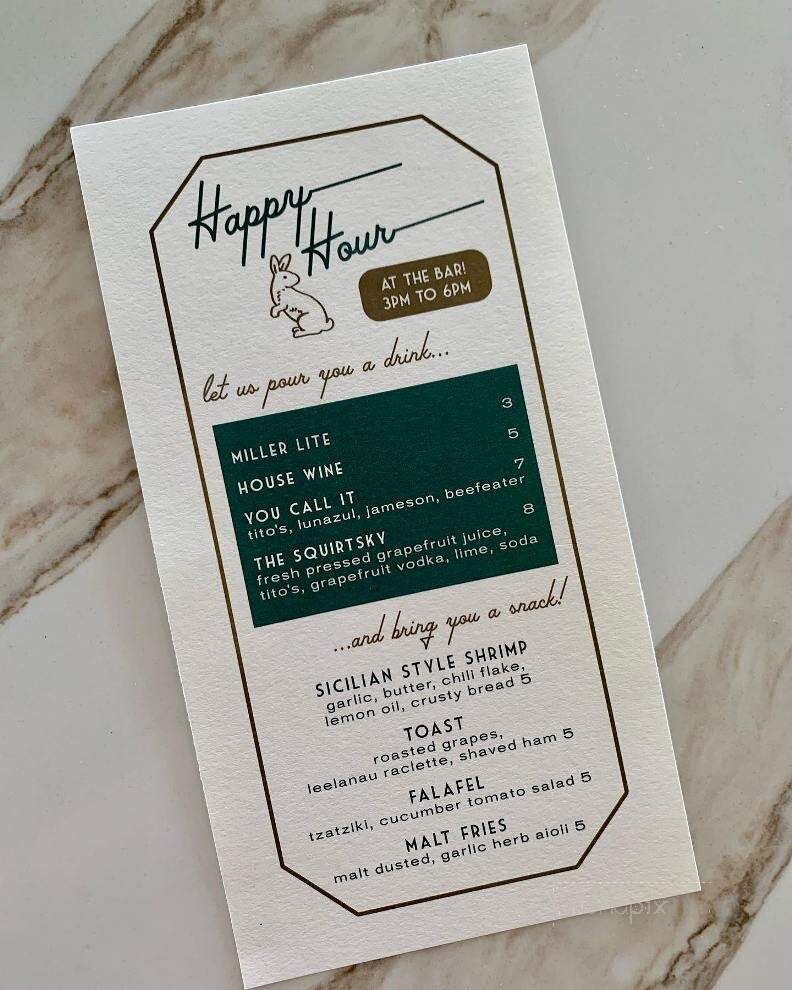 Happy
Hour
AT THE BAR!
3PM TO 6PM
let us pour you a drink...
MILLER LITE 3
HOUSE WINE 5
YOU CALL IT 7
tito's, lunazul, jameson, beefeater
THE SQUIRTSKY 8
fresh pressed grapefruit juice,
tito's, grapefruit vodka, lime, soda
...and bring you a snack!
SICILIAN STYLE SHRIMP
garlic, butter, chili flake,
lemon oil, crusty bread 5
TOAST
roasted grapes,
leelanau raclette, shaved ham 5
FALAFEL
tzatziki, cucumber tomato salad 5
MALT FRIES
malt dusted, garlic herb aioli 5